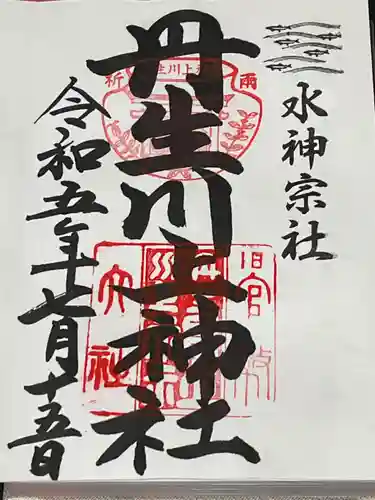 水神宗社
丹生川上神社
令和五年十一月十五日
雨
祈
丹生川上神社
旧官幣大社